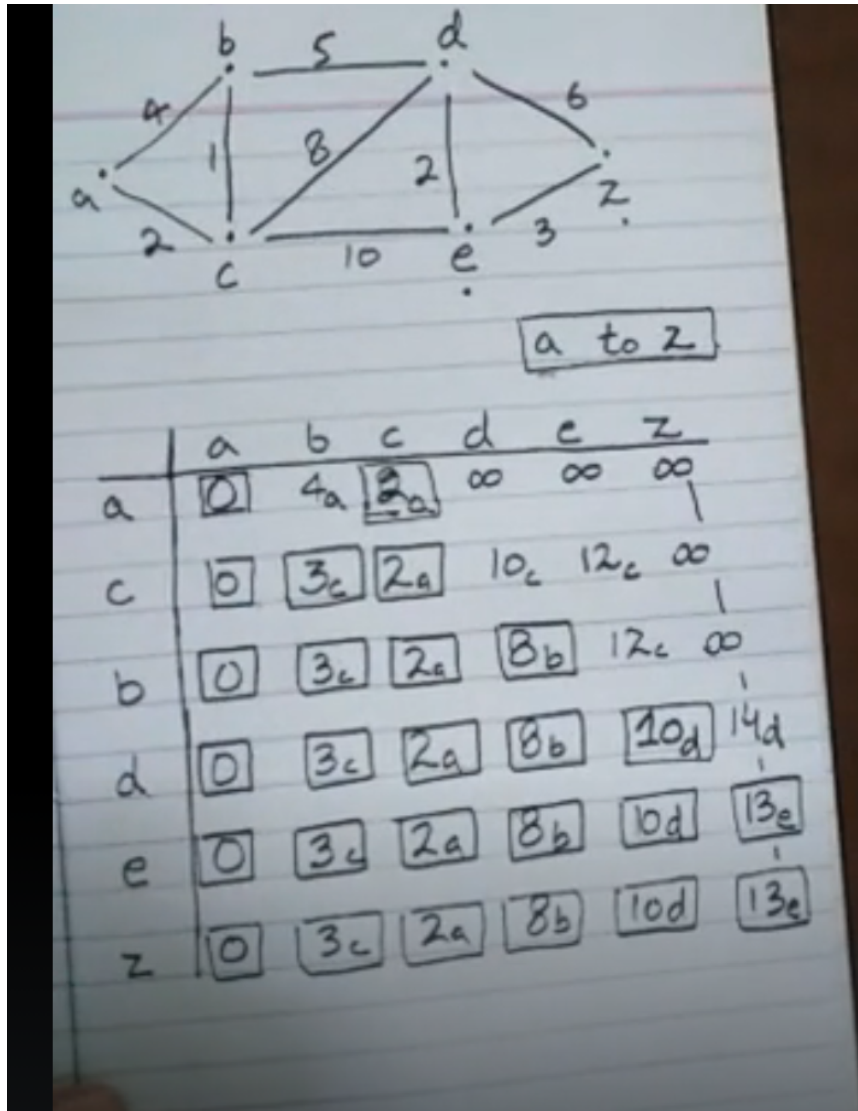 b 5 d
4 1 8 2 6
a z
2 c 10 e 3
a to z
a b c d e z
a 0 4a 2a ∞ ∞ ∞
c 0 3c 2a 10c 12c ∞
b 0 3c 2a 8b 12c ∞
d 0 3c 2a 8b 10d 14d
e 0 3c 2a 8b 10d 13e
z 0 3c 2a 8b 10d 13e